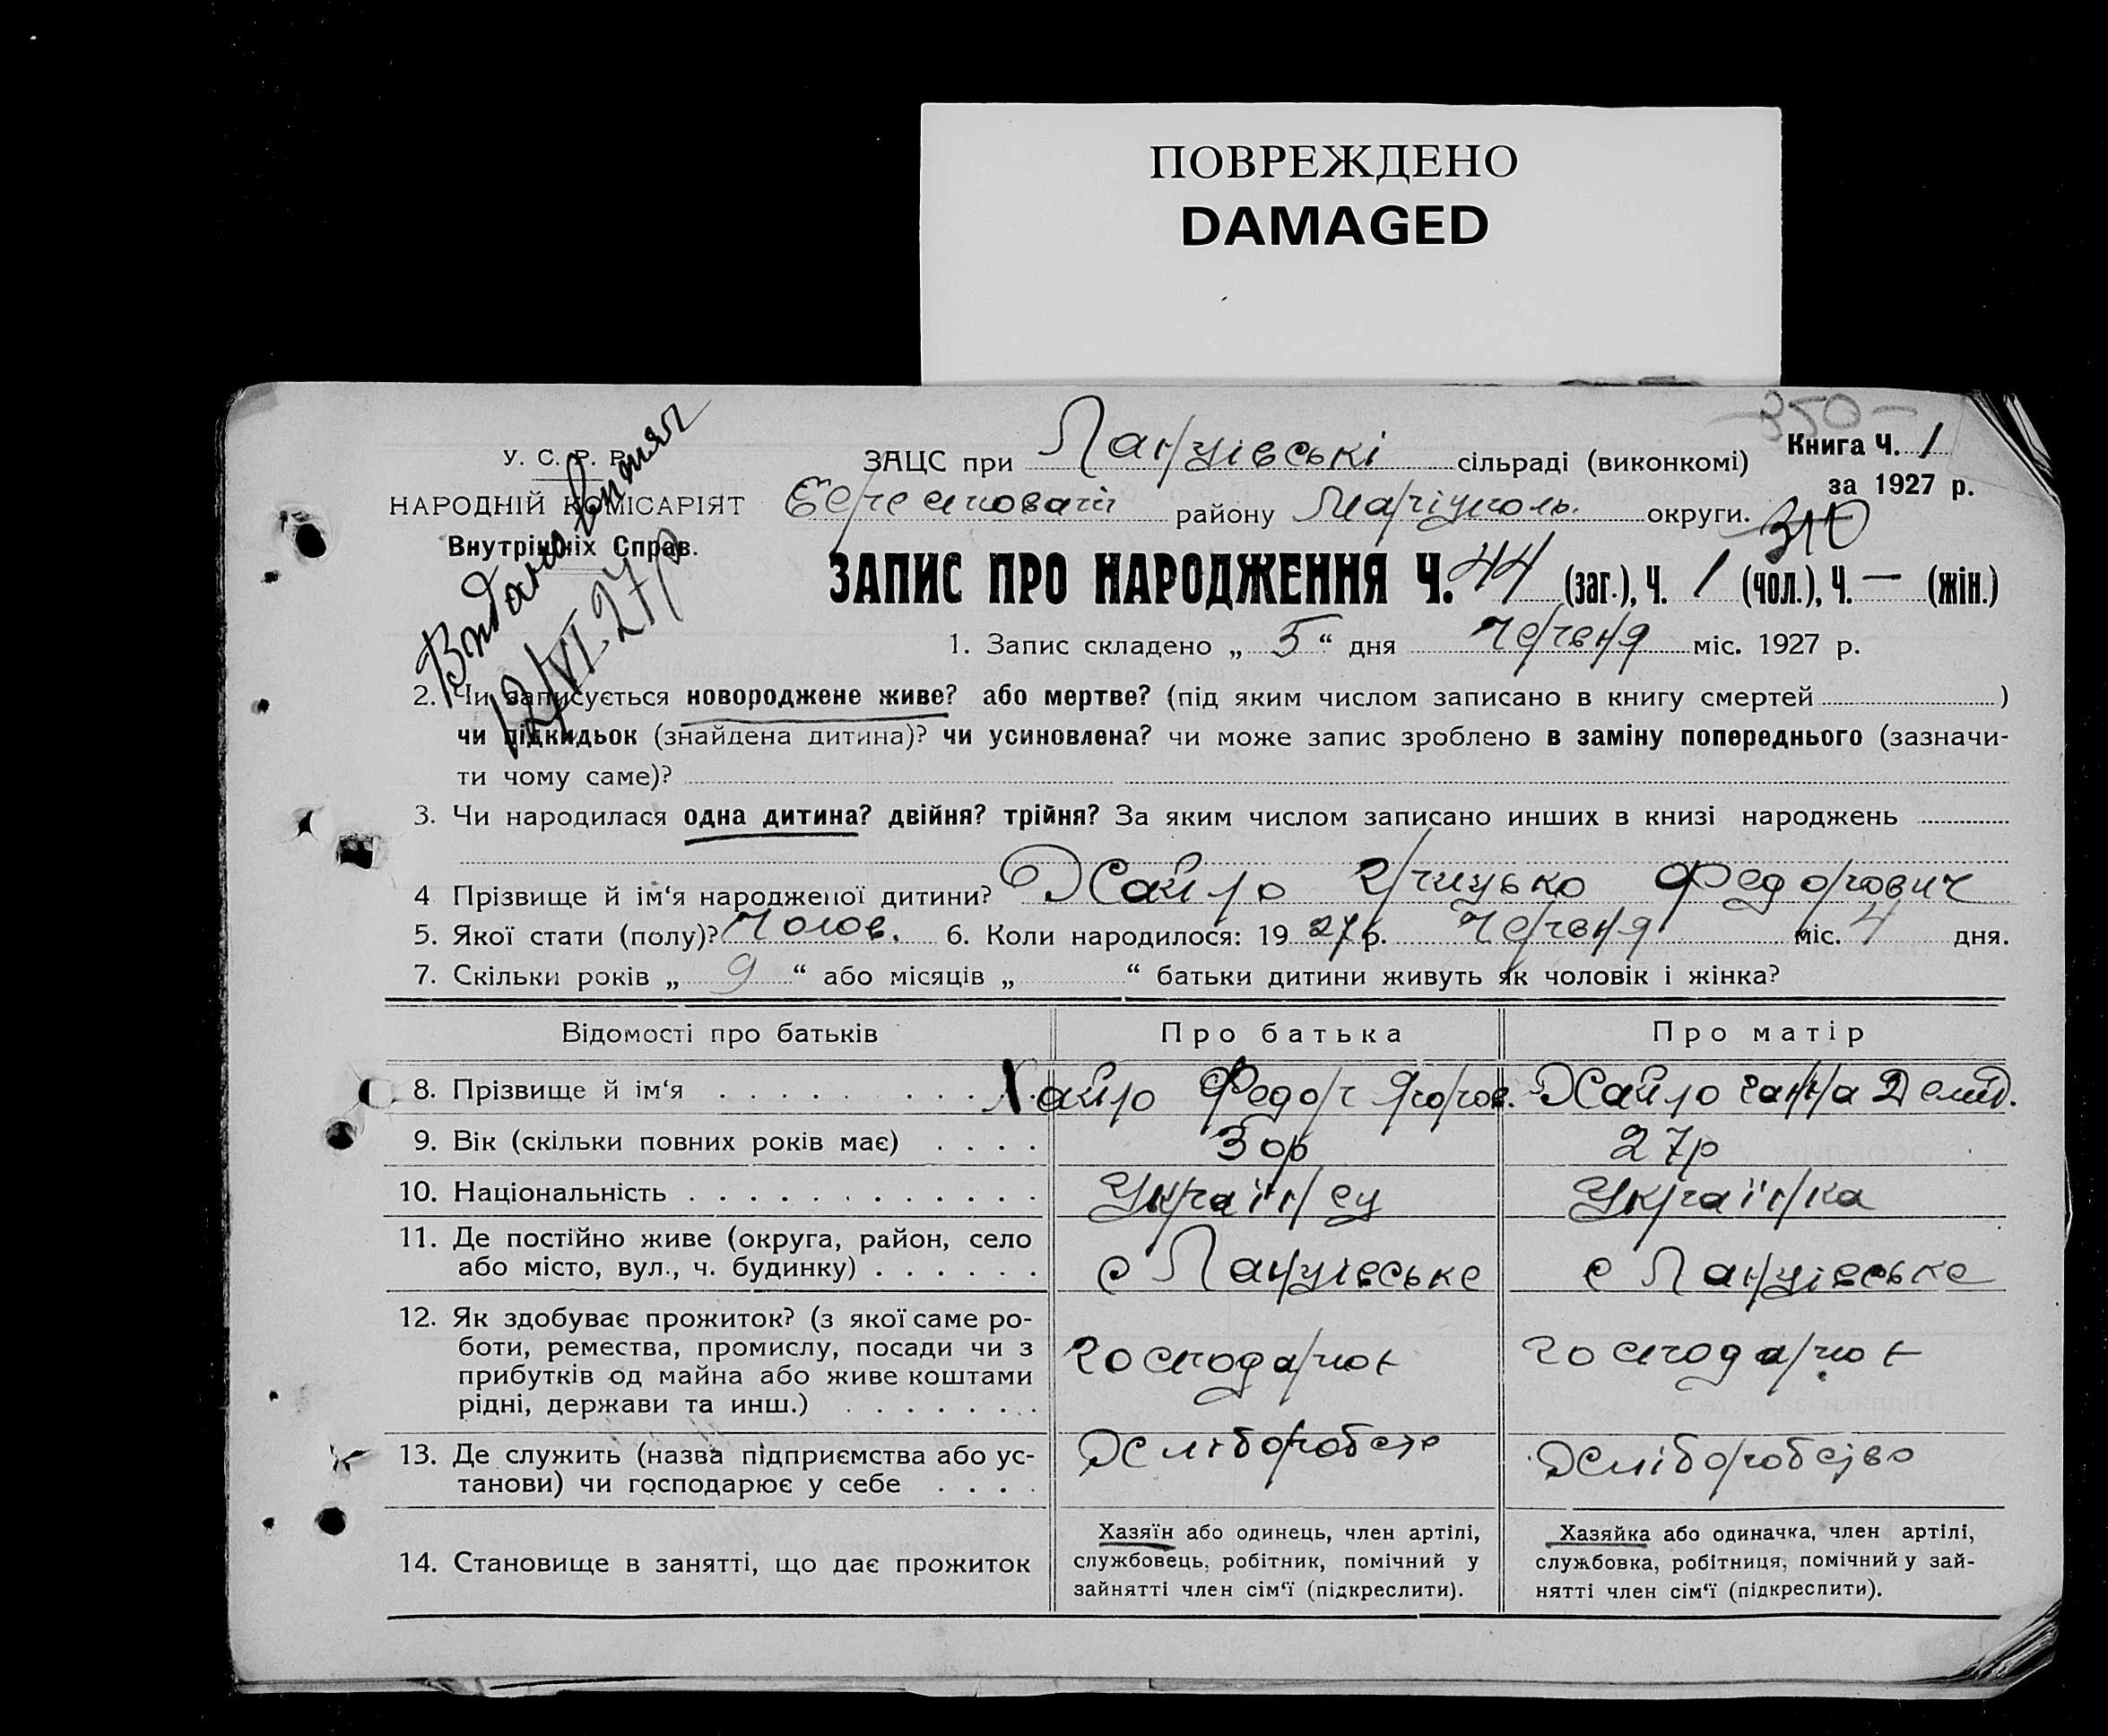 ПОВРЕЖДЕНО
DAMAGED
350
Книга Ч. 1
за 1927 р.
310
У. С. Р. Р.
НАРОДНІЙ КОМІСАРІЯТ
Внутрішніх Справ.
Видана витяг
12/VI-27р
ЗАЦС при Ланцівські сільраді (виконкомі)
району Маріуполь. округи.
ЗАПИС ПРО НАРОДЖЕННЯ Ч. 44 (заг.), Ч. 1 (чол.), Ч. — (жін.)
1. Запис складено „ 5 “ дня червня міс. 1927 р.
2. Чи записується новороджене живе? або мертве? (під яким числом записано в книгу смертей )
чи підкидьок (знайдена дитина)? чи усиновлена? чи може запис зроблено в заміну попереднього (зазначи-
ти чому саме)?
3. Чи народилася одна дитина? двійня? трійня? За яким числом записано инших в книзі народжень
4 Прізвище й ім‘я народженої дитини? Хайло Грицько Федорович
5. Якої стати (полу)? Чолов. 6. Коли народилося: 19 27 р. червня міс. 4 дня.
7. Скільки років „ 9 “ або місяців „ “ батьки дитини живуть як чоловік і жінка?
Відомості про батьків Про батька Про матір
8. Прізвище й ім‘я Хайло Федор Хайло Ганна Демид.
9. Вік (скільки повних років має) 30р 27р
10. Національність Українец Українка
11. Де постійно живе (округа, район, село
або місто, вул., ч. будинку) с Ланцівське с Ланцівське
12. Як здобуває прожиток? (з якої саме ро-
боти, ремества, промислу, посади чи з
прибутків од майна або живе коштами
рідні, держави та инш.) господарює господарює
13. Де служить (назва підприємства або ус-
танови) чи господарює у себе Хліборобств Хліборобство
14. Становище в занятті, що дає прожиток
Хазяїн або одинець, член артілі,
службовець, робітник, помічний у
зайнятті член сім‘ї (підкреслити).
Хазяйка або одиначка, член артілі,
службовка, робітниця, помічний у зай-
нятті член сім‘ї (підкреслити).